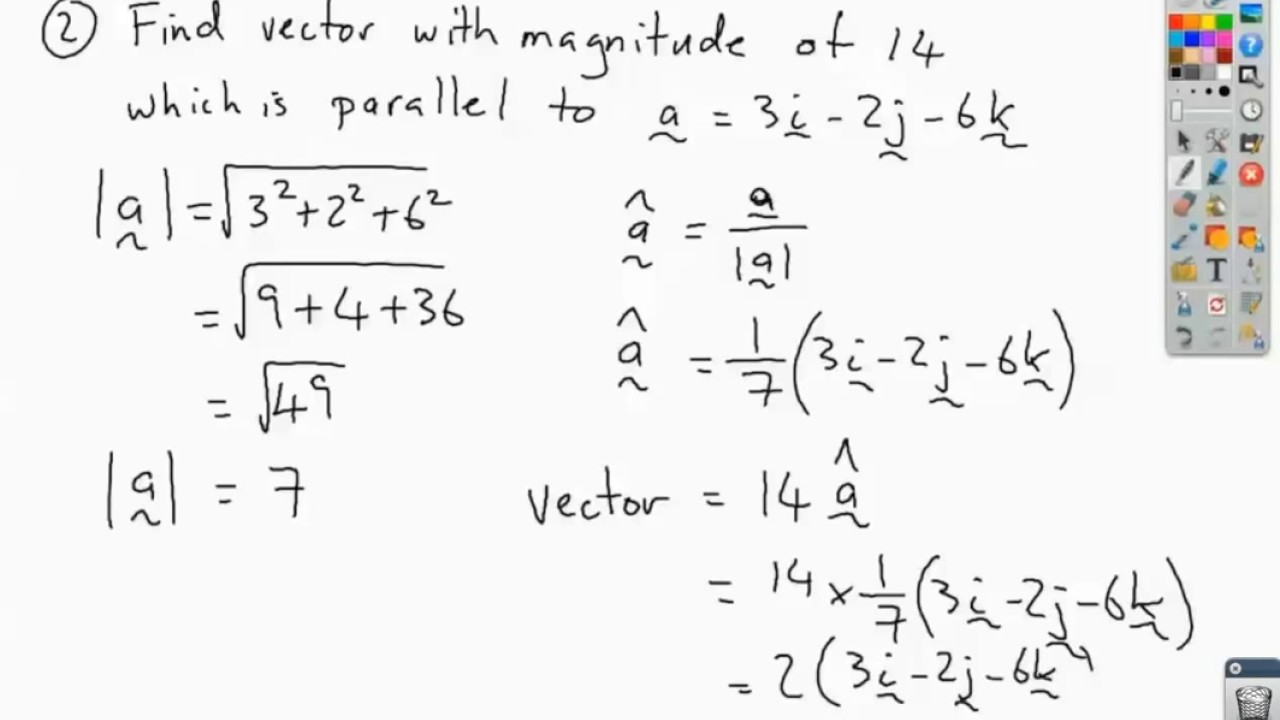 ② Find vector with magnitude of 14
which is parallel to a̰ = 3ḭ - 2j̰ - 6k̰
|a̰| = √(3² + 2² + 6²)
= √(9 + 4 + 36)
= √49
|a̰| = 7
â̰ = a̰/|a̰|
â̰ = 1/7 (3ḭ - 2j̰ - 6k̰)
vector = 14 â̰
= 14 × 1/7 (3ḭ - 2j̰ - 6k̰)
= 2 (3ḭ - 2j̰ - 6k̰
T